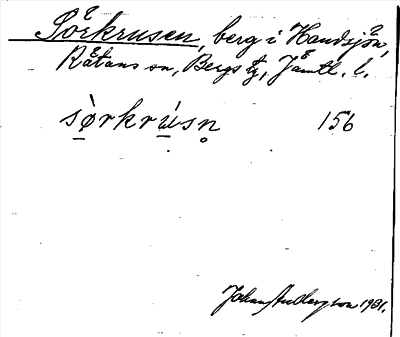 Sörkrusen, berg i Handsjön,
Råtans sn, Bergs tg, Jämtl. l.
sø̀rkrúsn̥ 156
Johan Andersson 1931.